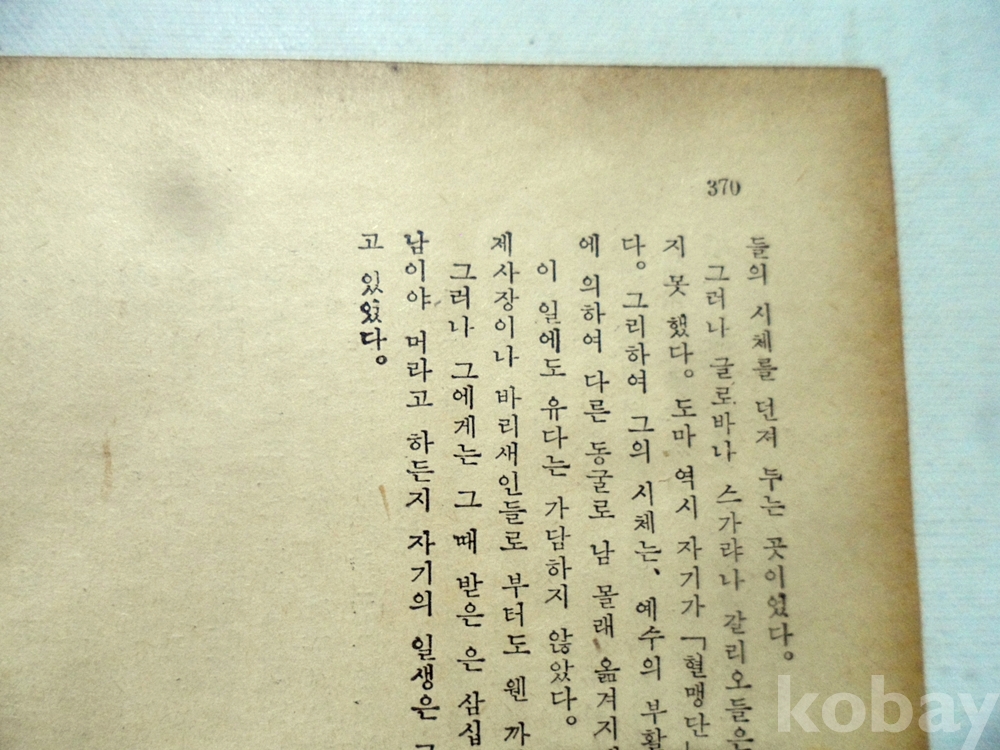 370
들의 시체를 던져 두는 곳이었다。
그러나 글로바나 스가랴나 갈리오들은
지 못 했다。 도마 역시 자기가 「혈맹단」
다。 그리하여 그의 시체는、 예수의 부활
에 의하여 다른 동굴로 남 몰래 옮겨지
이 일에도 유다는 가담하지 않았다。
제사장이나 바리새인들로 부터도 웬 까
그러나 그에게는 그 때 받은 은 삼십
남이야 머라고 하든지 자기의 일생은
고 있었다。
kobay